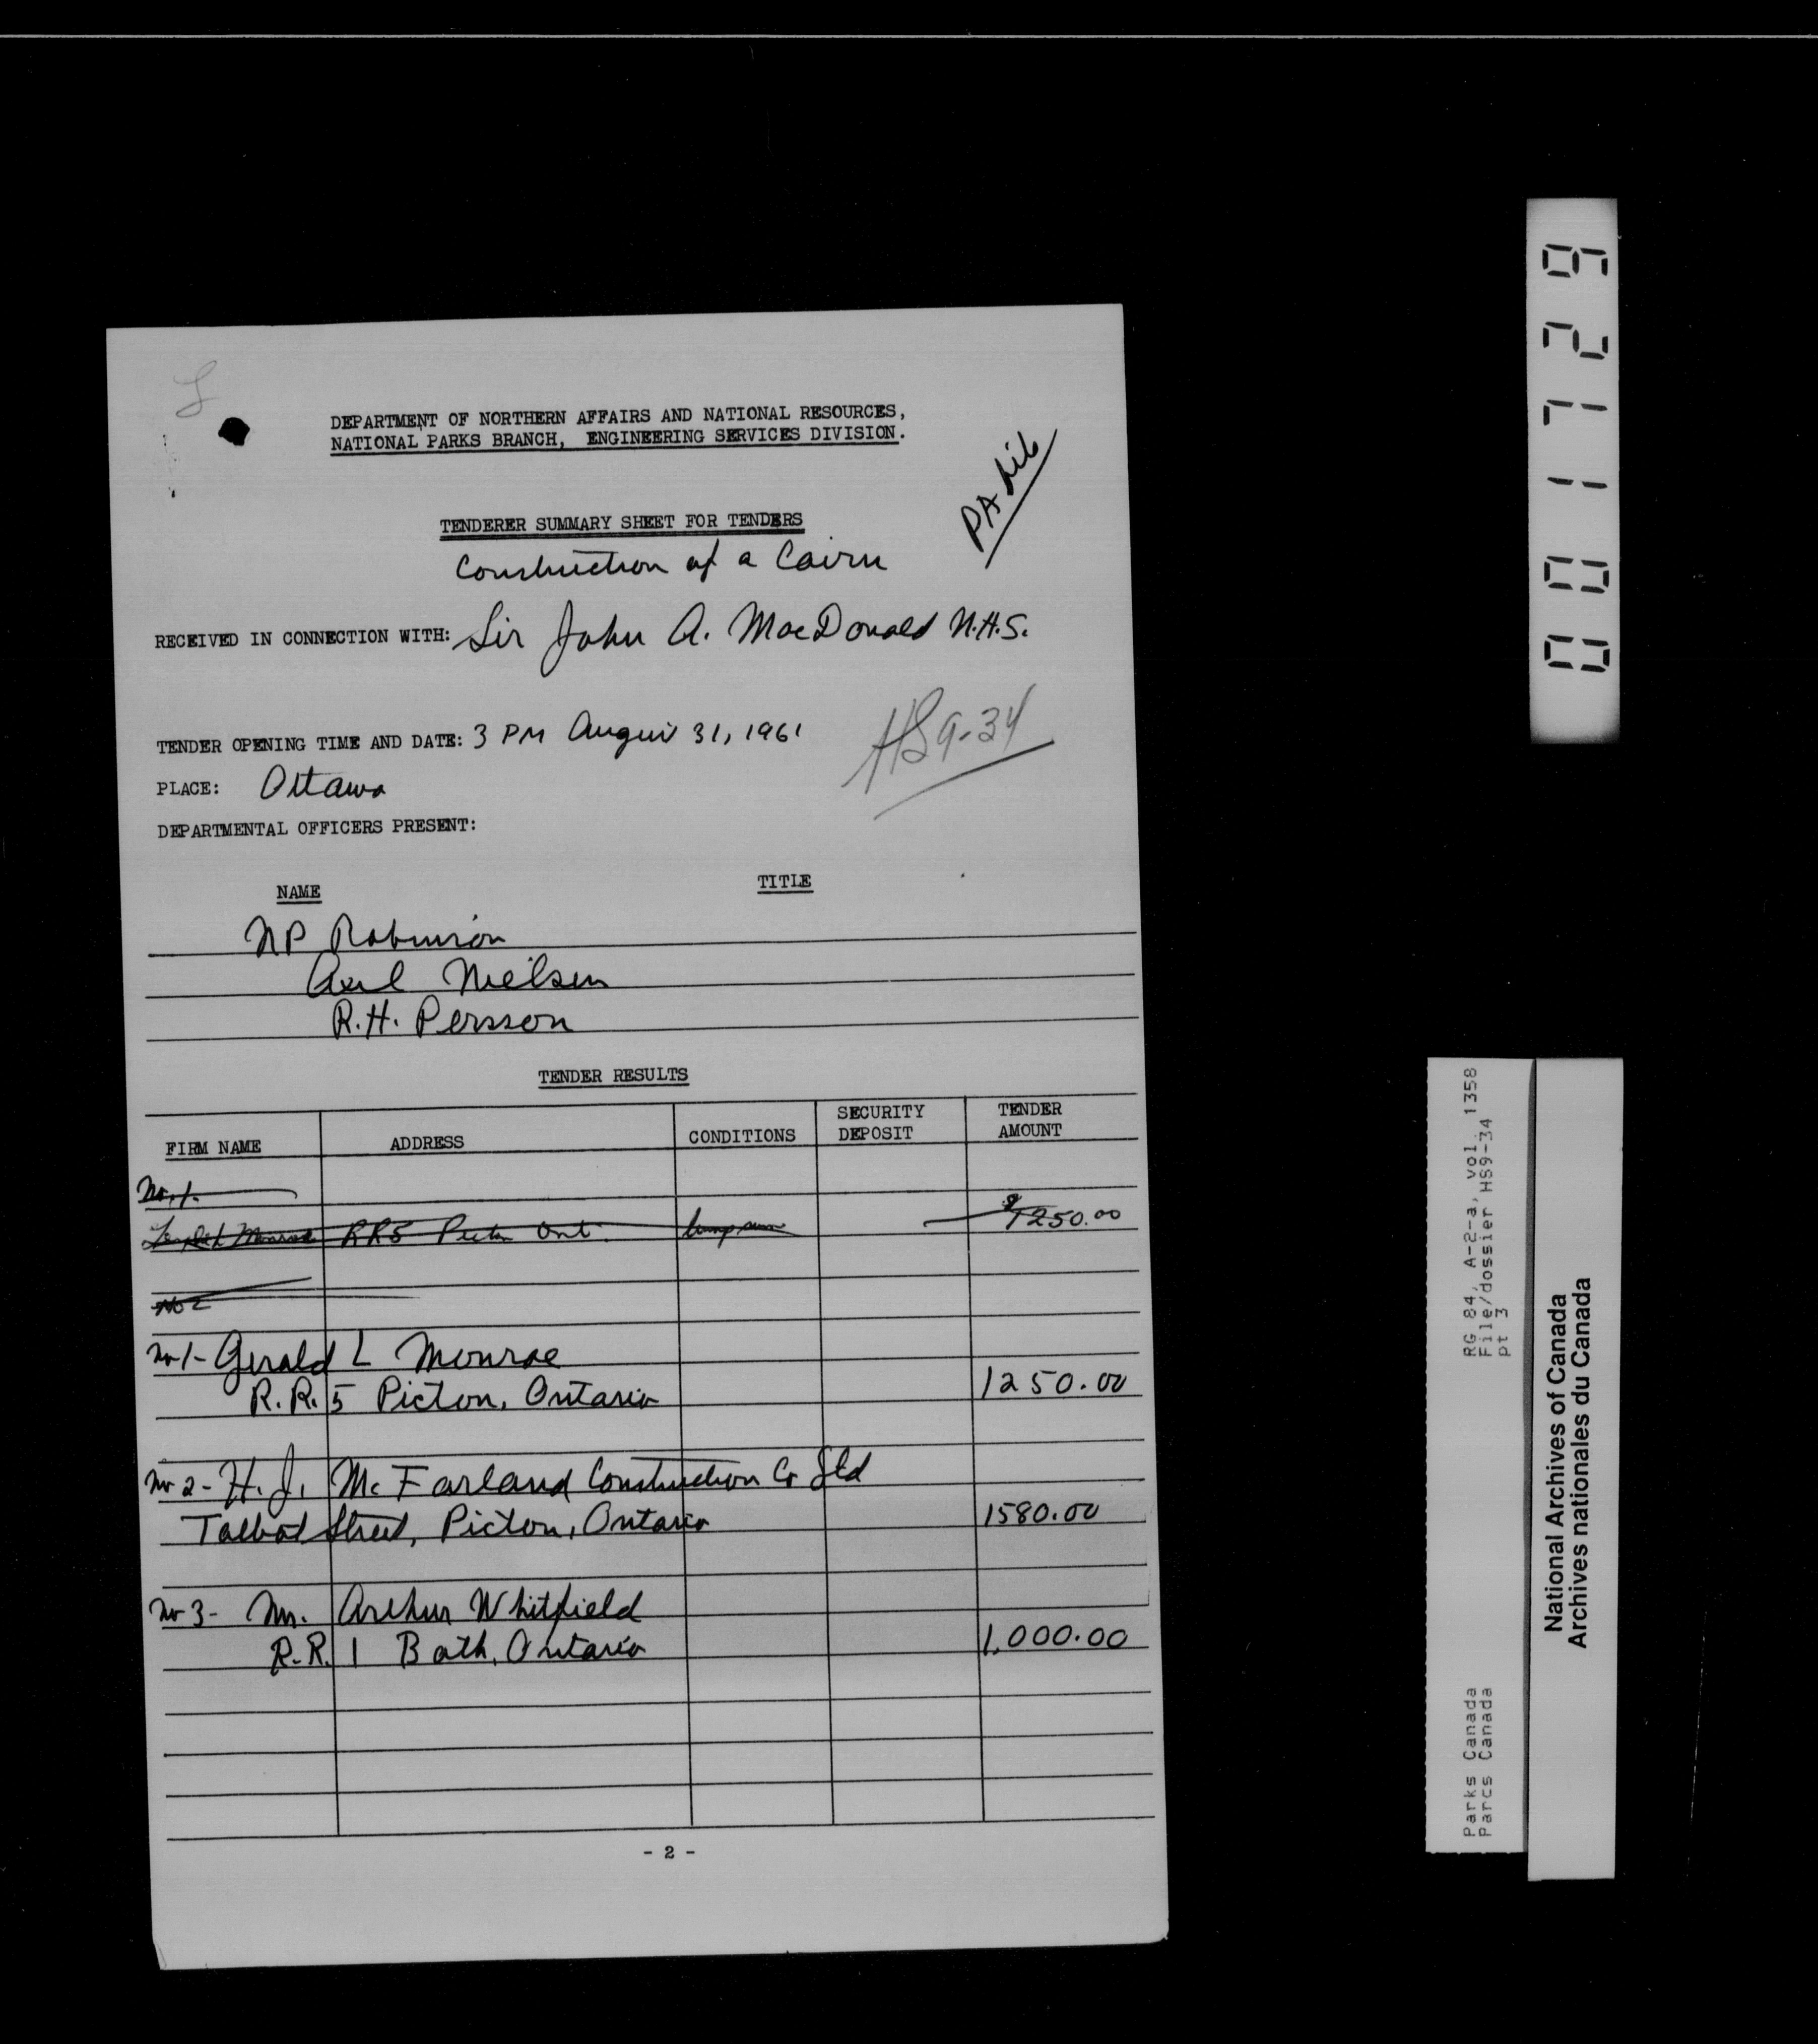 DEPARTMENT OF NORTHERN AFFAIRS AND NATIONAL RESOURCES,
NATIONAL PARKS BRANCH, ENGINEERING SERVICES DIVISION.
PA
TENDERER SUMMARY SHEET FOR TENDERS
Construction of a Cairn
RECEIVED IN CONNECTION WITH: Sir John A. MacDonald N.H.S.
TENDER OPENING TIME AND DATE: 3 PM August 31, 1961
HS9-34
PLACE: Ottawa
DEPARTMENTAL OFFICERS PRESENT:
NAME TITLE
NP Robinson
Axel Nielsen
R.H. Persson
TENDER RESULTS
FIRM NAME ADDRESS CONDITIONS SECURITY DEPOSIT TENDER AMOUNT
No. 1.
Monroe RR5 Picton Ont. lump sum $1250.00
No 2
No 1- Gerald L Monroe
R.R. 5 Picton, Ontario 1250.00
No 2- H. J. McFarland Construction Co Ltd
Talbot Street, Picton, Ontario 1580.00
No 3- Mr. Arthur Whitfield
R.R. 1 Bath, Ontario 1,000.00
- 2 -
001729
RG 84, A-2-a, vol. 1358
File/dossier HS9-34
pt 3
Parks Canada
Parcs Canada
National Archives of Canada
Archives nationales du Canada